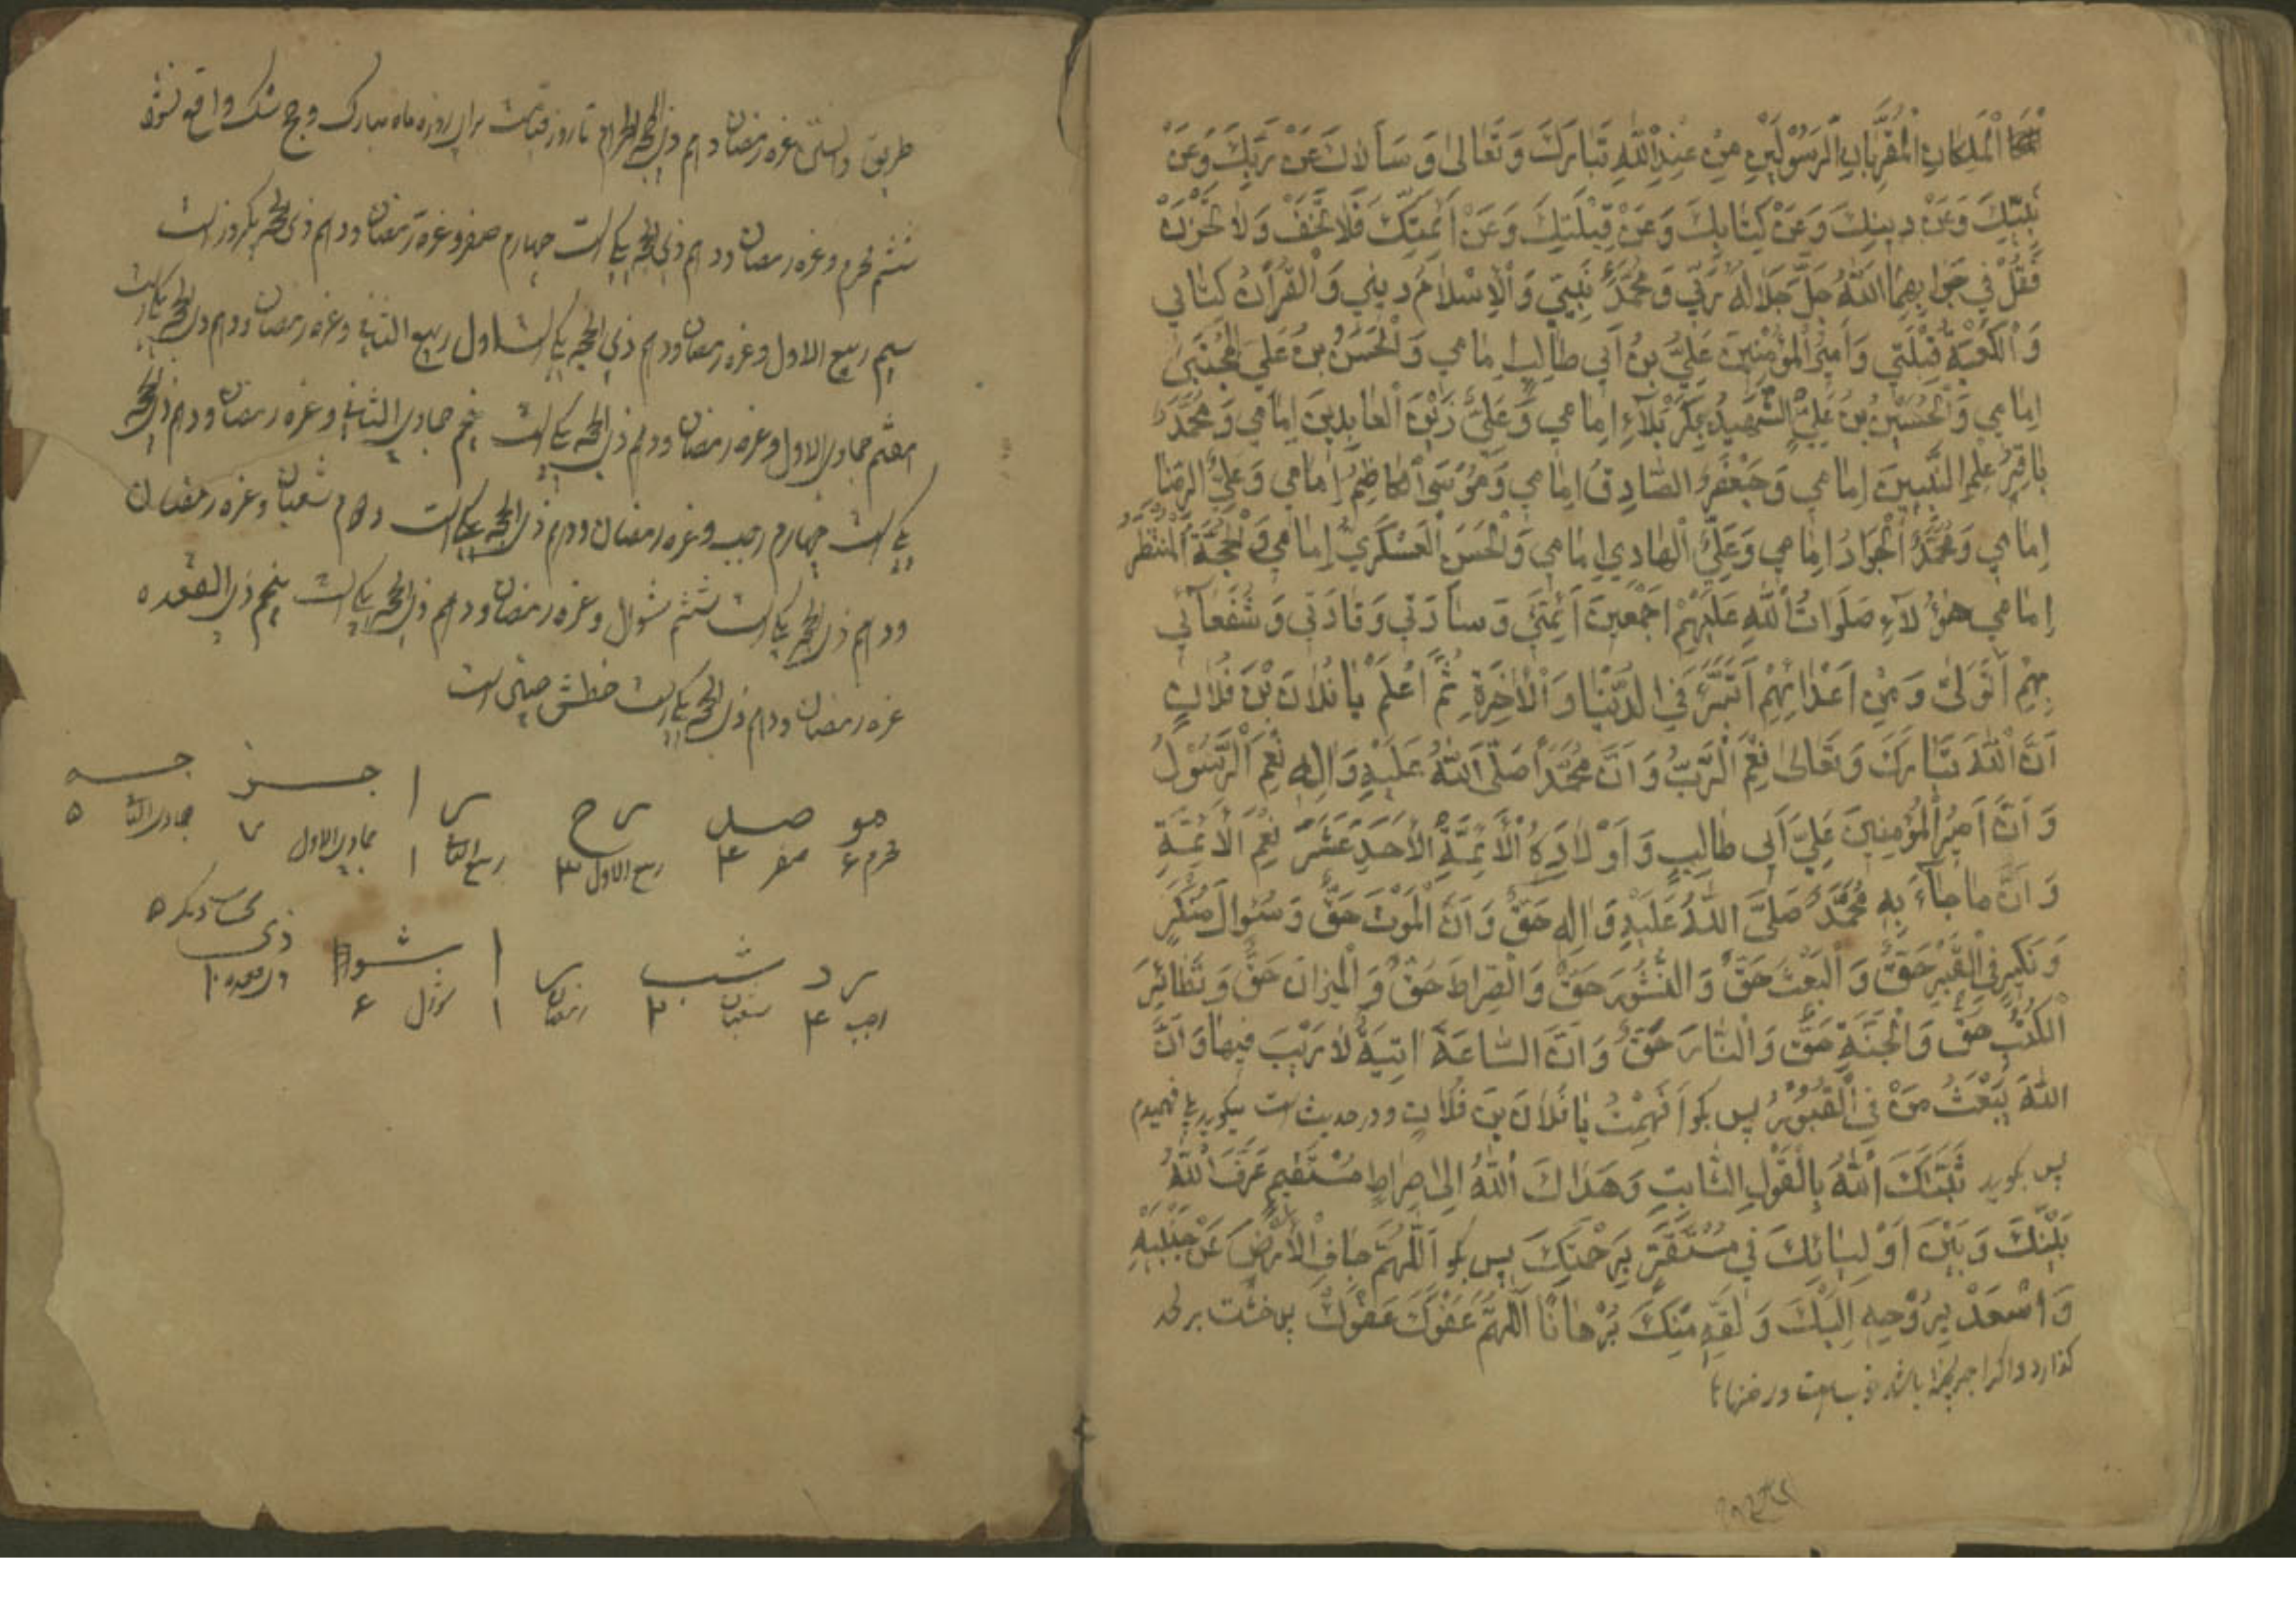 الْمَلَكَانِ الْمُقَرَّبَانِ الرَّسُولَيْنِ مِنْ عِنْدِ اللّٰهِ تَبَارَكَ وَ تَعَالىٰ وَ سَأَلاكَ عَنْ رَبِّكَ وَ عَنْ
نَبِيِّكَ وَ عَنْ دِينِكَ وَ عَنْ كِتَابِكَ وَ عَنْ قِبْلَتِكَ وَ عَنْ اَئِمَّتِكَ فَلَا تَخَفْ وَ لَا تَحْزَنْ
فَقُلْ فِي جَوَابِهِمَا اَللّٰهُ جَلَّ جَلَالُهُ رَبِّي وَ مُحَمَّدٌ نَبِيِّي وَ الْاِسْلَامُ دِينِي وَ الْقُرْآنُ كِتَابِي
وَ الْكَعْبَةُ قِبْلَتِي وَ اَمِيرُ الْمُؤْمِنِينَ عَلِيُّ بْنُ اَبِي طَالِبٍ اِمَامِي وَ الْحَسَنُ بْنُ عَلِيٍّ الْمُجْتَبىٰ
اِمَامِي وَ الْحُسَيْنُ بْنُ عَلِيٍّ الشَّهِيدُ بِكَرْبَلَآءِ اِمَامِي وَ عَلِيٌّ زَيْنُ الْعَابِدِينَ اِمَامِي وَ مُحَمَّدٌ
بَاقِرُ عِلْمِ النَّبِيِّينَ اِمَامِي وَ جَعْفَرٌ الصَّادِقُ اِمَامِي وَ مُوسَى الْكَاظِمُ اِمَامِي وَ عَلِيٌّ الرِّضَا
اِمَامِي وَ مُحَمَّدٌ الْجَوَادُ اِمَامِي وَ عَلِيٌّ الْهَادِي اِمَامِي وَ الْحَسَنُ الْعَسْكَرِيُّ اِمَامِي وَ الْحُجَّةُ الْمُنْتَظَرُ
اِمَامِي هٰؤُلَآءِ صَلَوَاتُ اللّٰهِ عَلَيْهِمْ اَجْمَعِينَ اَئِمَّتِي وَ سَادَتِي وَ قَادَتِي وَ شُفَعَآئِي
بِهِمْ اَتَوَلّىٰ وَ مِنْ اَعْدَائِهِمْ اَتَبَرَّءُ فِي الدُّنْيَا وَ الْاٰخِرَةِ ثُمَّ اعْلَمْ يَا فُلَانَ بْنَ فُلَانٍ
اَنَّ اللّٰهَ تَبَارَكَ وَ تَعَالىٰ نِعْمَ الرَّبُّ وَ اَنَّ مُحَمَّدًا صَلَّى اللّٰهُ عَلَيْهِ وَ اٰلِهِ نِعْمَ الرَّسُولُ
وَ اَنَّ اَمِيرَ الْمُؤْمِنِينَ عَلِيَّ اَبِي طَالِبٍ وَ اَوْلَادَهُ الْاَئِمَّةَ الْاَحَدَ عَشَرَ نِعْمَ الْاَئِمَّةِ
وَ اَنَّ مَا جَآءَ بِهِ مُحَمَّدٌ صَلَّى اللّٰهُ عَلَيْهِ وَ اٰلِهِ حَقٌّ وَ اَنَّ الْمَوْتَ حَقٌّ وَ سُؤَالَ مُنْكَرٍ
وَ نَكِيرٍ فِي الْقَبْرِ حَقٌّ وَ الْبَعْثَ حَقٌّ وَ النُّشُورَ حَقٌّ وَ الصِّرَاطَ حَقٌّ وَ الْمِيزَانَ حَقٌّ وَ تَطَائُرَ
الْكُتُبِ حَقٌّ وَ الْجَنَّةَ حَقٌّ وَ النَّارَ حَقٌّ وَ اَنَّ السَّاعَةَ اٰتِيَةٌ لَا رَيْبَ فِيهَا وَ اَنَّ
اللّٰهَ يَبْعَثُ مَنْ فِي الْقُبُورِ پس بگو اَفَهِمْتَ يَا فُلَانَ بْنَ فُلَانٍ و در حدیث است میگوید بلی فهمیدم
پس بگوید ثَبَّتَكَ اللّٰهُ بِالْقَوْلِ الثَّابِتِ وَ هَدَاكَ اللّٰهُ اِلىٰ صِرَاطٍ مُسْتَقِيمٍ عَرَّفَ اللّٰهُ
بَيْنَكَ وَ بَيْنَ اَوْلِيَائِكَ فِي مُسْتَقَرٍّ مِنْ رَحْمَتِكَ پس بگو اَللّٰهُمَّ جَافِ الْاَرْضَ عَنْ جَنْبَيْهِ
وَ اصْعَدْ بِرُوحِهِ اِلَيْكَ وَ لَقِّهِ مِنْكَ بُرْهَانًا اَللّٰهُمَّ عَفْوَكَ عَفْوَكَ پس خشت بر لحد
گذارد و اگر
طریق دانستن غره رمضان و دهم ذی الحجه الحرام تا روز قیامت برای روزه ماه مبارک و حج شک واقع نشود
ششم محرم و غره رمضان و دهم ذی الحجه یکی است چهارم صفر و غره رمضان و دهم ذی الحجه یکروز است
سیم ربیع الاول و غره رمضان و دهم ذی الحجه یکی است اول ربیع الثانی و غره رمضان و دهم ذی الحجه یکی است
هفتم جمادی الاول و غره رمضان و دهم ذی الحجه یکی است پنجم جمادی الثانی و غره رمضان و دهم ذی الحجه
یکی است چهارم رجب و غره رمضان و دهم ذی الحجه یکی است دوم شعبان و غره رمضان
و دهم ذی الحجه یکی است ششم شوال و غره رمضان و دهم ذی الحجه یکی است پنجم ذی القعده
غره رمضان و دهم ذی الحجه یکی است خطش چنین است
مو صد رح ر ا جز جه
محرم ۶ صفر ۴ ربیع الاول ۳ ربیع الثانی ۱ جمادی الاول ۷ جمادی الثانی ۵
رد شب ر ا شوا
رجب ۴ شعبان ۲ رمضان ۱ شوال ۶